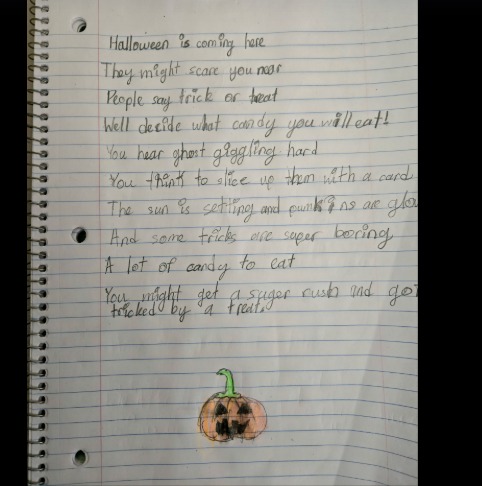 Halloween is coming here
They might scare you near
People say trick or treat
Well decide what candy you will eat!
You hear ghost giggling hard
You think to slice up them with a card
The sun is setting and punkins are glo
And some tricks are super boring
A lot of candy to eat
You might get a suger rush and go
tricked by a treat.